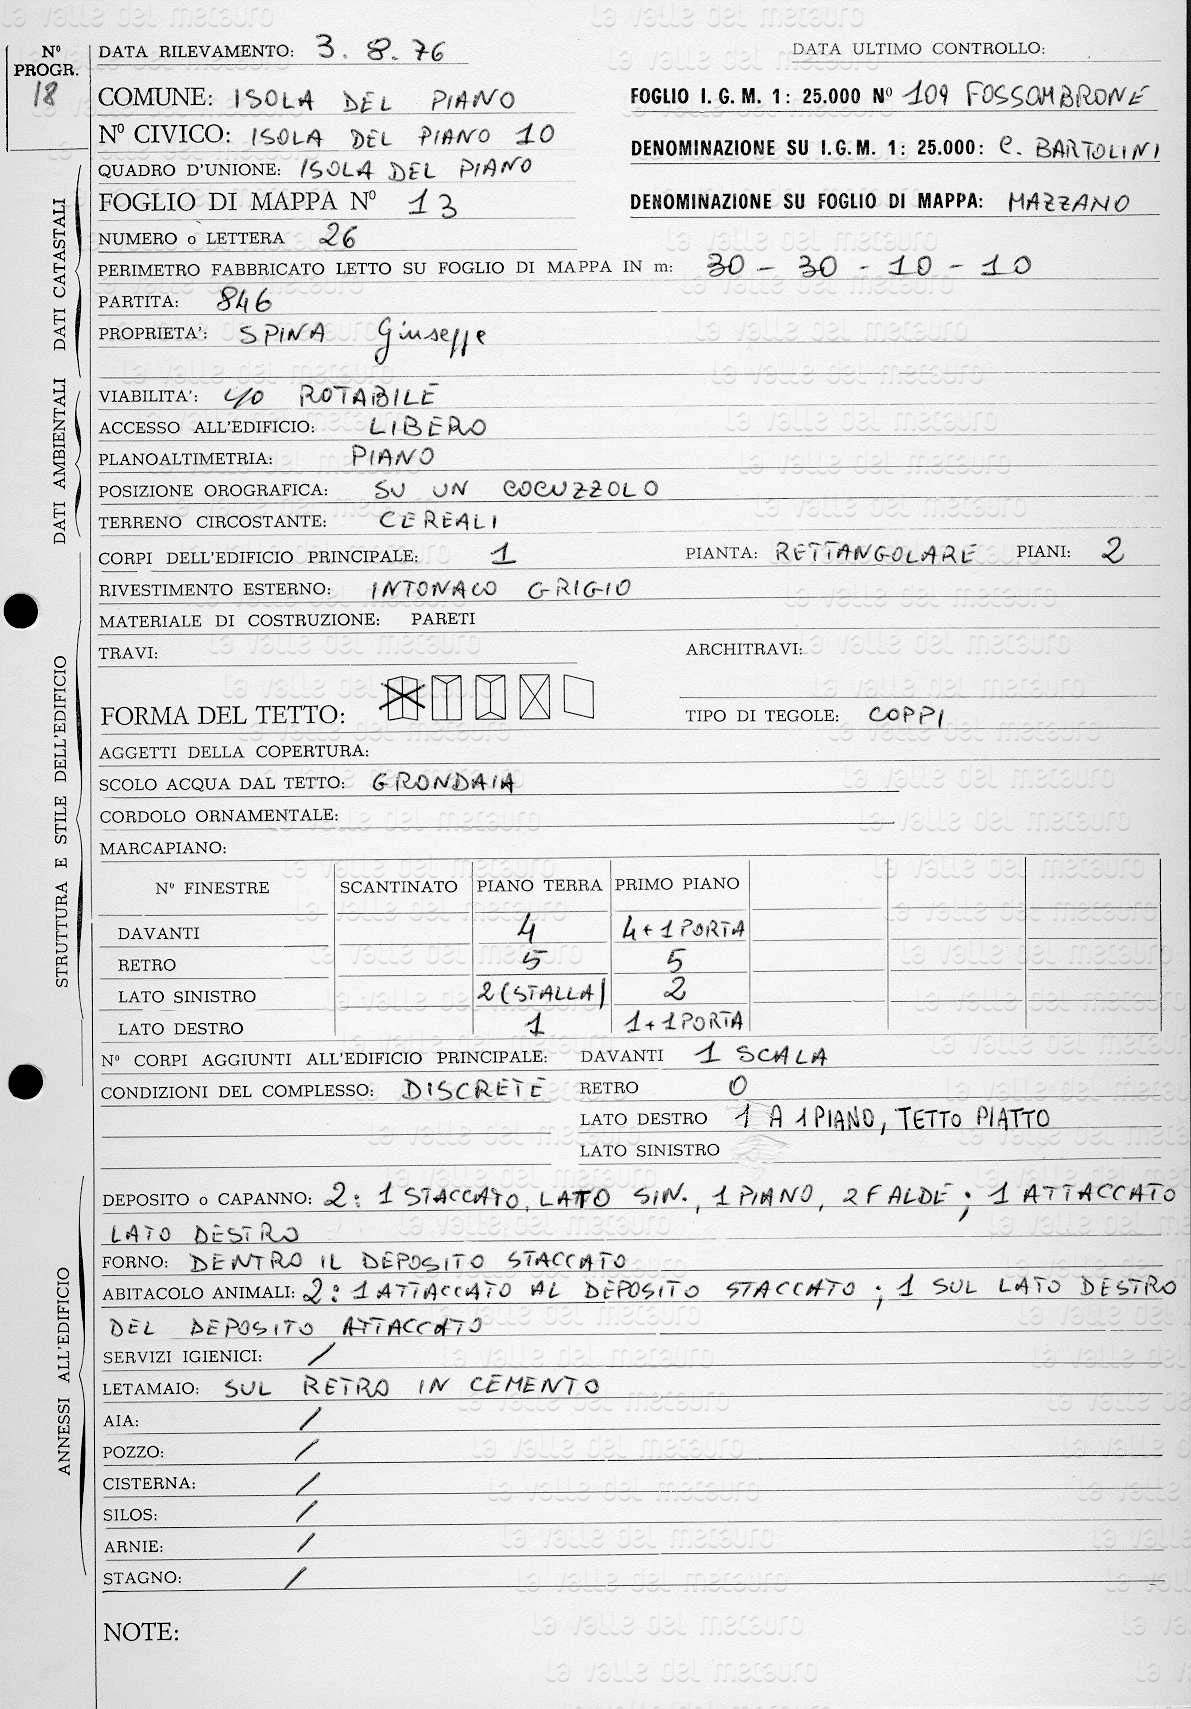 La valle del metauro
Nº PROGR. 18
DATA RILEVAMENTO: 3.8.76 DATA ULTIMO CONTROLLO:
COMUNE: ISOLA DEL PIANO FOGLIO I.G.M. 1: 25.000 Nº 109 FOSSOMBRONE
Nº CIVICO: ISOLA DEL PIANO 10 DENOMINAZIONE SU I.G.M. 1: 25.000: C. BARTOLINI
QUADRO D'UNIONE: ISOLA DEL PIANO
FOGLIO DI MAPPA Nº 13 DENOMINAZIONE SU FOGLIO DI MAPPA: MAZZANO
NUMERO o LETTERA 26
PERIMETRO FABBRICATO LETTO SU FOGLIO DI MAPPA IN m: 30 - 30 - 10 - 10
PARTITA: 846
PROPRIETA': SPINA Giuseppe
DATI CATASTALI
VIABILITA': c/o ROTABILE
ACCESSO ALL'EDIFICIO: LIBERO
PLANOALTIMETRIA: PIANO
POSIZIONE OROGRAFICA: SU UN COCUZZOLO
TERRENO CIRCOSTANTE: CEREALI
DATI AMBIENTALI
CORPI DELL'EDIFICIO PRINCIPALE: 1 PIANTA: RETTANGOLARE PIANI: 2
RIVESTIMENTO ESTERNO: INTONACO GRIGIO
MATERIALE DI COSTRUZIONE: PARETI
TRAVI: ARCHITRAVI:
FORMA DEL TETTO: TIPO DI TEGOLE: COPPI
AGGETTI DELLA COPERTURA:
SCOLO ACQUA DAL TETTO: GRONDAIA
CORDOLO ORNAMENTALE:
MARCAPIANO:
Nº FINESTRE SCANTINATO PIANO TERRA PRIMO PIANO
DAVANTI 4 4+1 PORTA
RETRO 5 5
LATO SINISTRO 2 (STALLA) 2
LATO DESTRO 1 1+1 PORTA
Nº CORPI AGGIUNTI ALL'EDIFICIO PRINCIPALE: DAVANTI 1 SCALA
CONDIZIONI DEL COMPLESSO: DISCRETE RETRO 0
LATO DESTRO 1 A 1 PIANO, TETTO PIATTO
LATO SINISTRO
STRUTTURA E STILE DELL'EDIFICIO
DEPOSITO o CAPANNO: 2: 1 STACCATO, LATO SIN., 1 PIANO, 2 FALDE; 1 ATTACCATO
LATO DESTRO
FORNO: DENTRO IL DEPOSITO STACCATO
ABITACOLO ANIMALI: 2: 1 ATTACCATO AL DEPOSITO STACCATO; 1 SUL LATO DESTRO
DEL DEPOSITO ATTACCATO
SERVIZI IGIENICI: /
LETAMAIO: SUL RETRO IN CEMENTO
AIA: /
POZZO: /
CISTERNA: /
SILOS: /
ARNIE: /
STAGNO: /
ANNESSI ALL'EDIFICIO
NOTE: